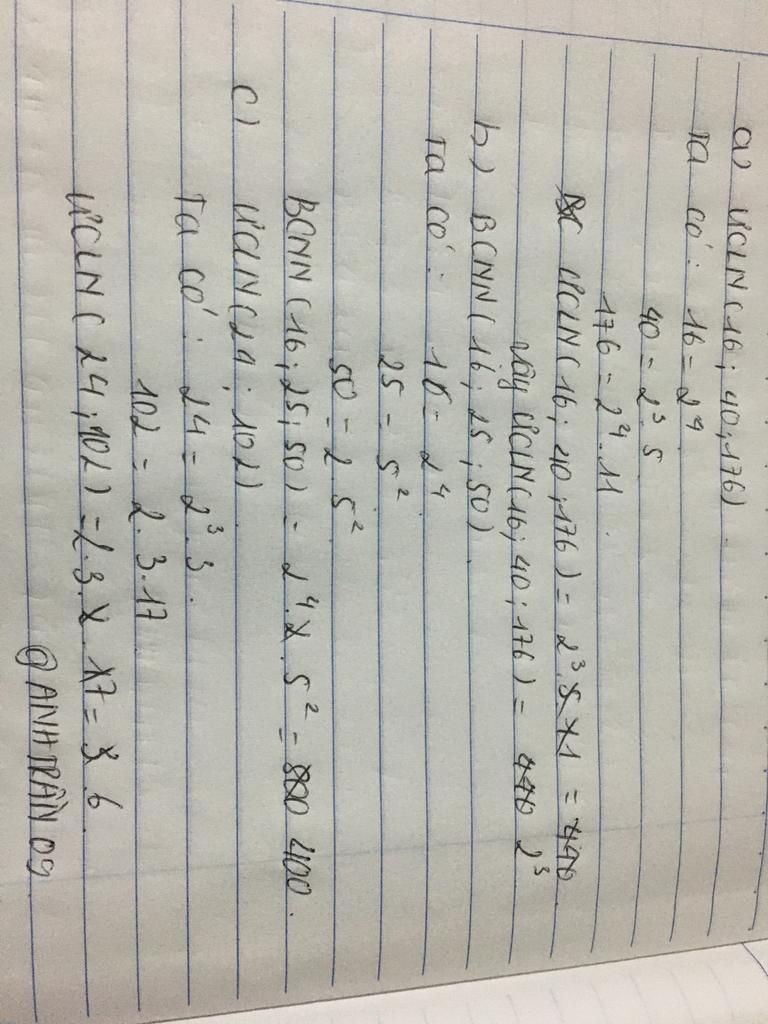 a) ƯCLN(16; 40; 176).
Ta có: 16 = 2⁴
40 = 2³.5
176 = 2⁴.11.
ƯCLN(16; 40; 176) = 2³.5.11 = 440
Vậy ƯCLN(16; 40; 176) = 440 2³
b) BCNN(16; 25; 50).
Ta có: 16 = 2⁴
25 = 5²
50 = 2.5²
BCNN(16; 25; 50) = 2⁴.2.5² = 800 400.
c) ƯCLN(24; 102)
Ta có: 24 = 2³.3.
102 = 2.3.17
ƯCLN(24; 102) = 2.3. 17 = 6
@ANHTRẦN09